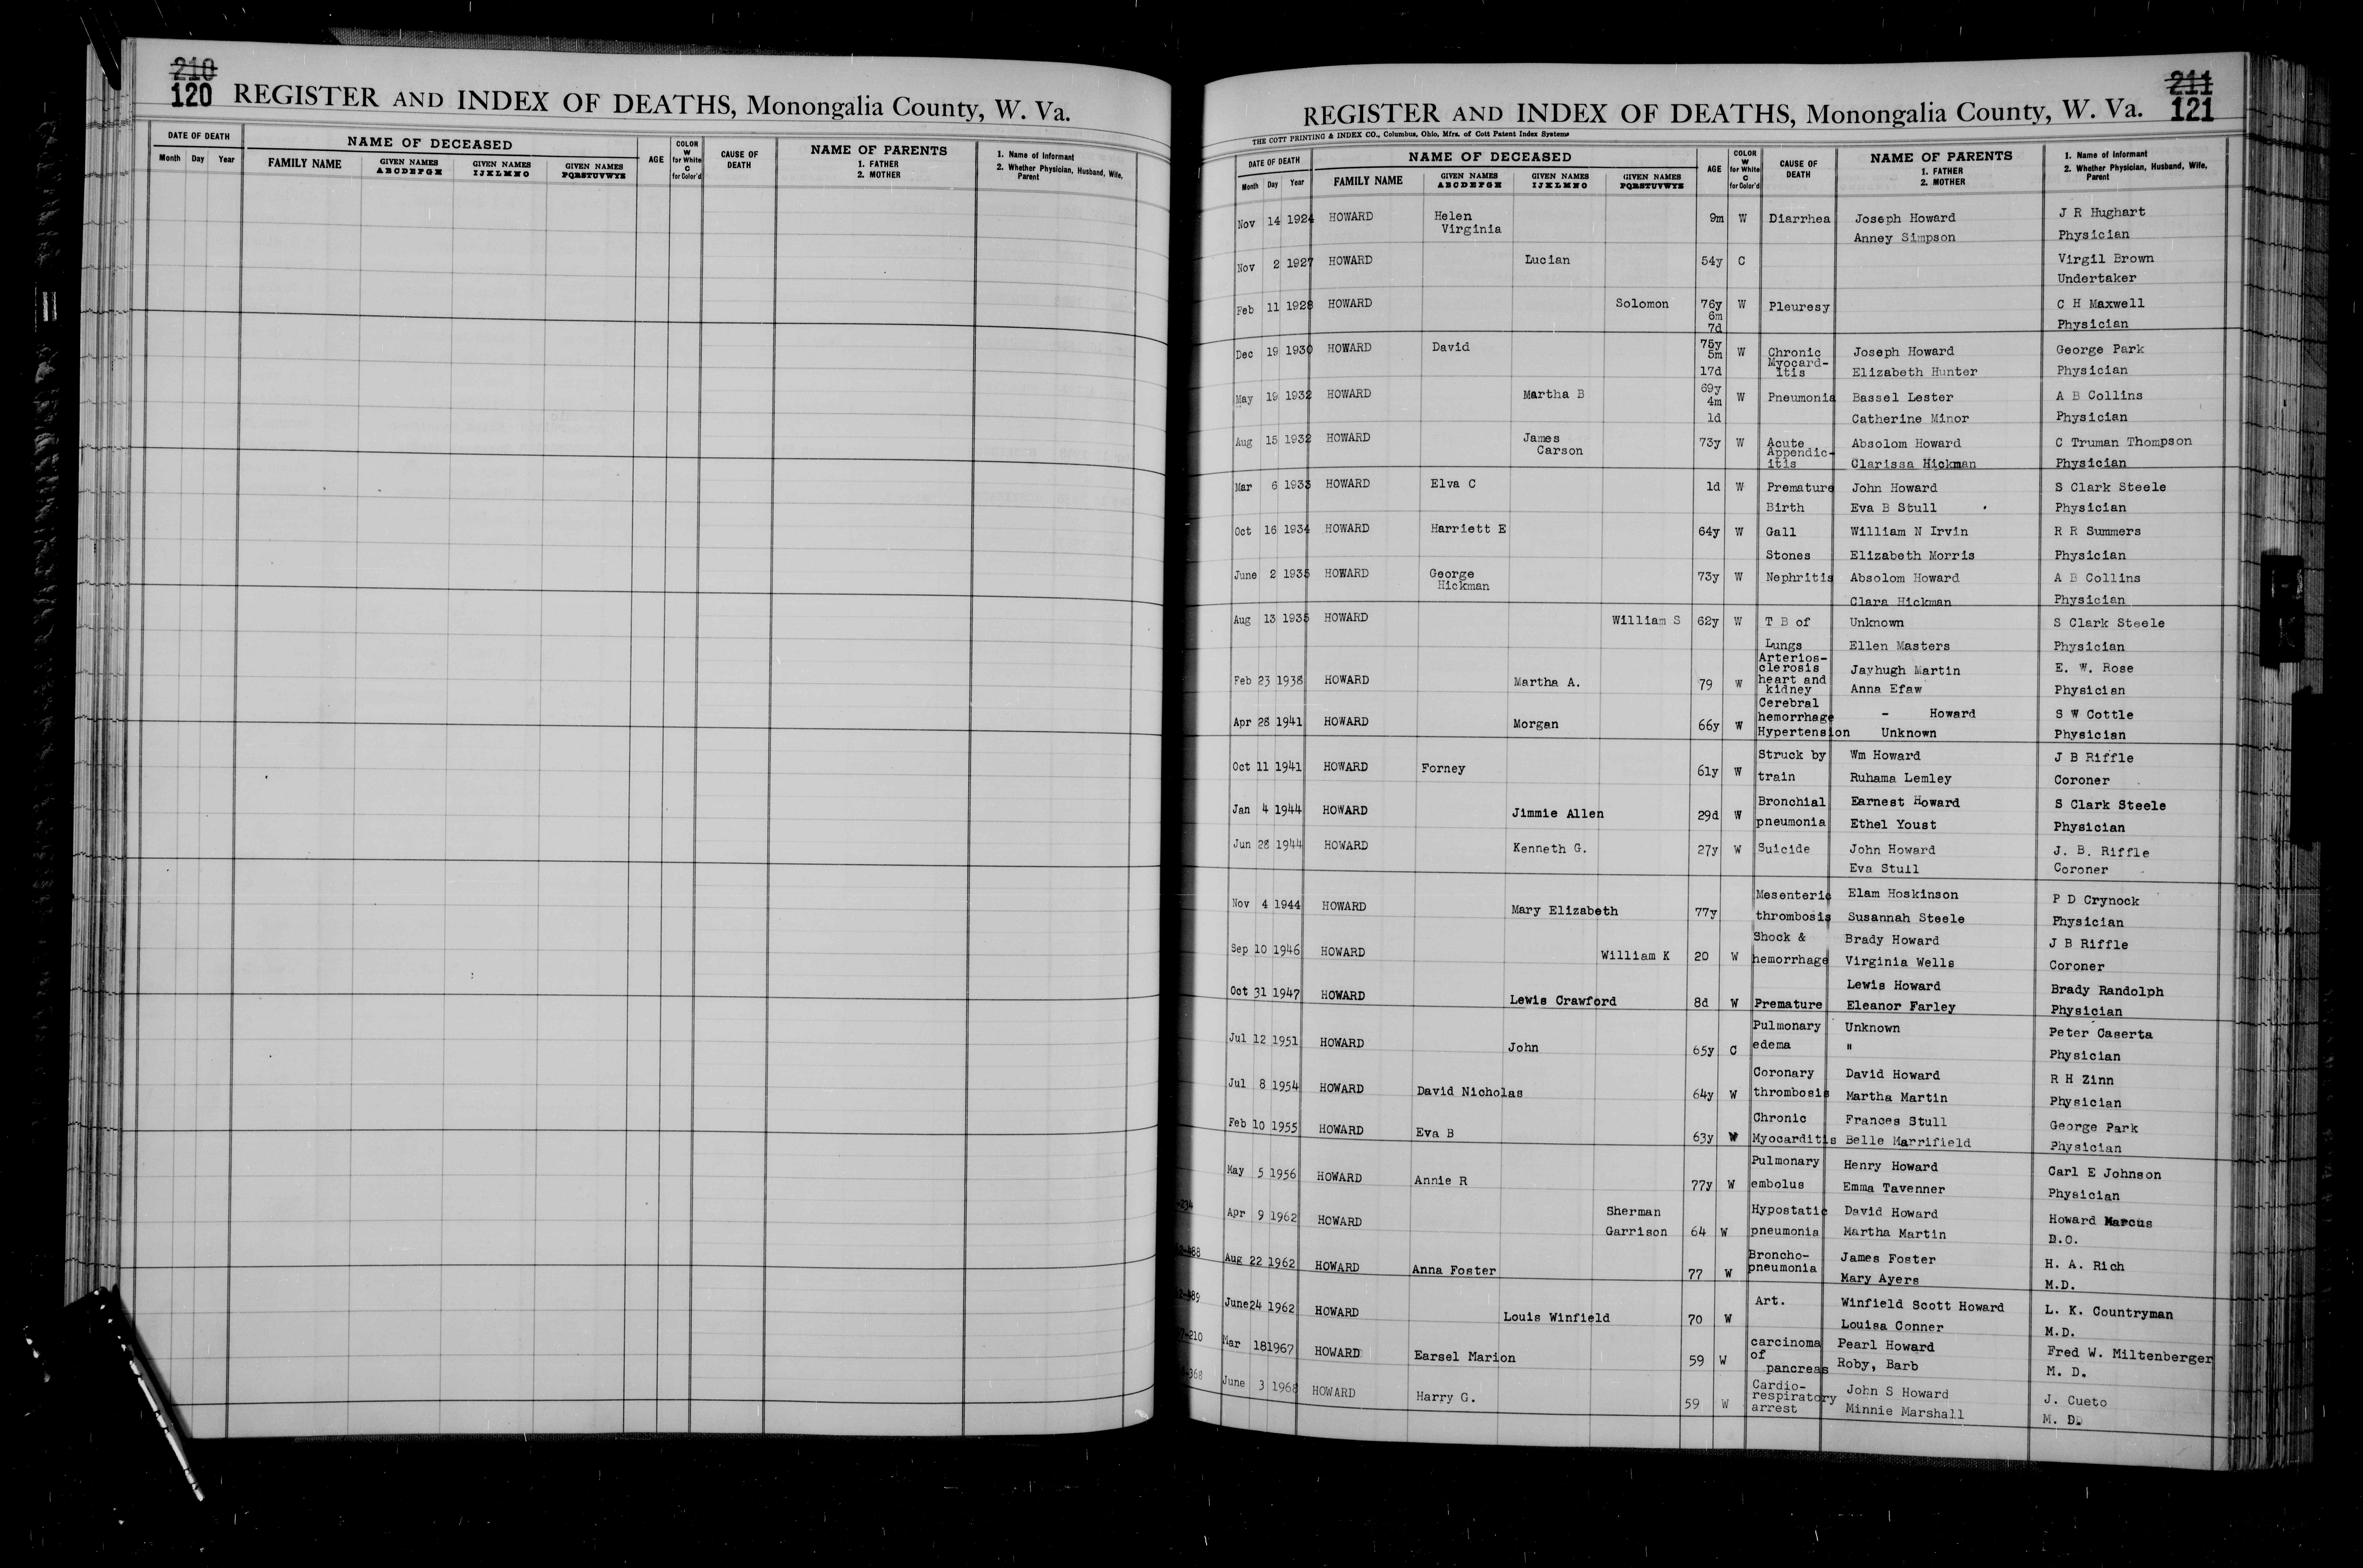 210
120 REGISTER AND INDEX OF DEATHS, Monongalia County, W. Va.
DATE OF DEATH NAME OF DECEASED AGE COLOR W for White C for Color'd CAUSE OF DEATH NAME OF PARENTS 1. FATHER 2. MOTHER 1. Name of Informant 2. Whether Physician, Husband, Wife, Parent
Month Day Year FAMILY NAME GIVEN NAMES ABCDEFGH GIVEN NAMES IJKLMNO GIVEN NAMES PQRSTUVWYZ
211
REGISTER AND INDEX OF DEATHS, Monongalia County, W. Va. 121
THE COTT PRINTING & INDEX CO., Columbus, Ohio, Mfrs. of Cott Patent Index Systems
DATE OF DEATH NAME OF DECEASED AGE COLOR W for White C for Color'd CAUSE OF DEATH NAME OF PARENTS 1. FATHER 2. MOTHER 1. Name of Informant 2. Whether Physician, Husband, Wife, Parent
Month Day Year FAMILY NAME GIVEN NAMES ABCDEFGH GIVEN NAMES IJKLMNO GIVEN NAMES PQRSTUVWYZ
Nov 14 1924 HOWARD Helen 9m W Diarrhea Joseph Howard J R Hughart
Virginia Anney Simpson Physician
Nov 2 1927 HOWARD Lucian 54y C Virgil Brown
Undertaker
Feb 11 1928 HOWARD Solomon 76y W Pleuresy C H Maxwell
6m
7d Physician
Dec 19 1930 HOWARD David 75y W Chronic Joseph Howard George Park
5m Myocard-
17d itis Elizabeth Hunter Physician
May 19 1932 HOWARD Martha B 69y W Pneumonia Bassel Lester A B Collins
4m
1d Catherine Minor Physician
Aug 15 1932 HOWARD James 73y W Acute Absolom Howard C Truman Thompson
Carson Appendic-
itis Clarissa Hickman Physician
Mar 6 1933 HOWARD Elva C 1d W Premature John Howard S Clark Steele
Birth Eva B Stull Physician
Oct 16 1934 HOWARD Harriett E 64y W Gall William N Irvin R R Summers
Stones Elizabeth Morris Physician
June 2 1935 HOWARD George 73y W Nephritis Absolom Howard A B Collins
Hickman Clara Hickman Physician
Aug 13 1935 HOWARD William S 62y W T B of Unknown S Clark Steele
Lungs Ellen Masters Physician
Arterios-
clerosis Jayhugh Martin E. W. Rose
Feb 23 1938 HOWARD Martha A. 79 W heart and
kidney Anna Efaw Physician
Cerebral
Apr 28 1941 HOWARD Morgan 66y W hemorrhage - Howard S W Cottle
Hypertension Unknown Physician
Oct 11 1941 HOWARD Forney 61y W Struck by Wm Howard J B Riffle
train Ruhama Lemley Coroner
Jan 4 1944 HOWARD Jimmie Allen 29d W Bronchial Earnest Howard S Clark Steele
pneumonia Ethel Youst Physician
Jun 28 1944 HOWARD Kenneth G. 27y W Suicide John Howard J. B. Riffle
Eva Stull Coroner
Nov 4 1944 HOWARD Mary Elizabeth 77y Mesenteric Elam Hoskinson P D Crynock
thrombosis Susannah Steele Physician
Sep 10 1946 HOWARD William K 20 W Shock & Brady Howard J B Riffle
hemorrhage Virginia Wells Coroner
Oct 31 1947 HOWARD Lewis Crawford 8d W Lewis Howard Brady Randolph
Premature Eleanor Farley Physician
Jul 12 1951 HOWARD John 65y C Pulmonary Unknown Peter Caserta
edema " Physician
Jul 8 1954 HOWARD David Nicholas 64y W Coronary David Howard R H Zinn
thrombosis Martha Martin Physician
Feb 10 1955 HOWARD Eva B 63y W Chronic Frances Stull George Park
Myocarditis Belle Marrifield Physician
May 5 1956 HOWARD Annie R 77y W Pulmonary Henry Howard Carl E Johnson
embolus Emma Tavenner Physician
-234 Apr 9 1962 HOWARD Sherman 64 W Hypostatic David Howard Howard Marcus
Garrison pneumonia Martha Martin D.O.
-488 Aug 22 1962 HOWARD Anna Foster 77 W Broncho- James Foster H. A. Rich
pneumonia Mary Ayers M.D.
-489 June 24 1962 HOWARD Louis Winfield 70 W Art. Winfield Scott Howard L. K. Countryman
Louisa Conner M.D.
-210 Mar 18 1967 HOWARD Earsel Marion 59 W carcinoma Pearl Howard Fred W. Miltenberger
of
pancreas Roby, Barb M. D.
-368 June 3 1968 HOWARD Harry G. 59 W Cardio- John S Howard J. Cueto
respiratory
arrest Minnie Marshall M. D.